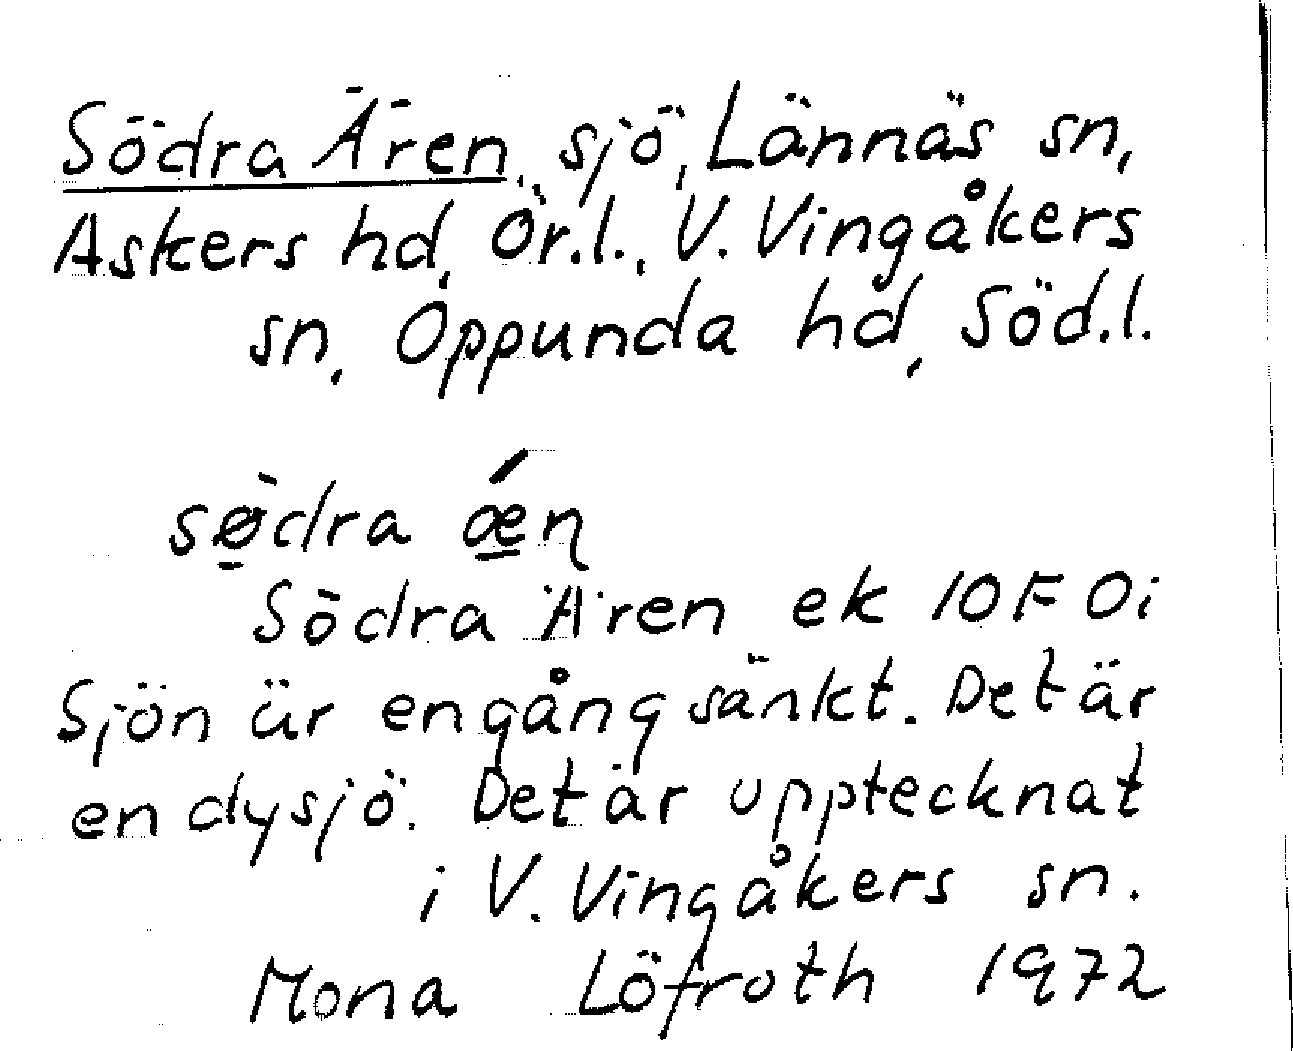 Södra Ären, sjö, Lännäs sn,
Askers hd, Ör.l., V. Vingåkers
sn, Oppunda hd, Söd.l.
sø̀dra ǽn
Södra Ären ek 10F 0i
Sjön är en gång sänkt. Det är
en dysjö. Det är upptecknat
i V. Vingåkers sn.
Mona Löfroth 1972